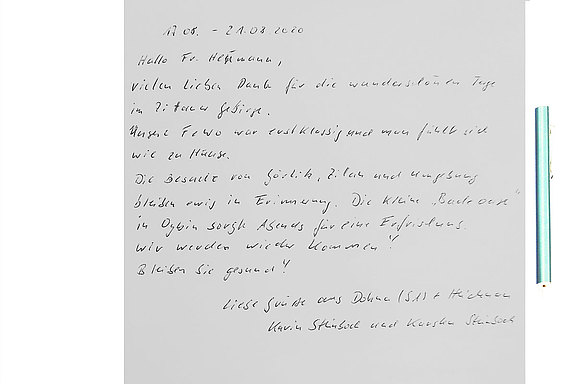 17.08. - 21.08.2020
Hallo Fr. Hermann,
vielen lieben Dank für die wunderschönen Tage
im Zittauer Gebirge.
Unsere FeWo war erstklassig und man fühlt sich
wie zu Hause.
Die Besuche von Görlitz, Zittau und Umgebung
bleiben ewig in Erinnerung. Die kleine „Badeoase"
in Oybin sorgte Abends für eine Erfrischung.
Wir werden wieder kommen"!
Bleiben Sie gesund"!
Liebe Grüße aus Dohna (S.) +
Karin Steinbock und Karsten Steinbock